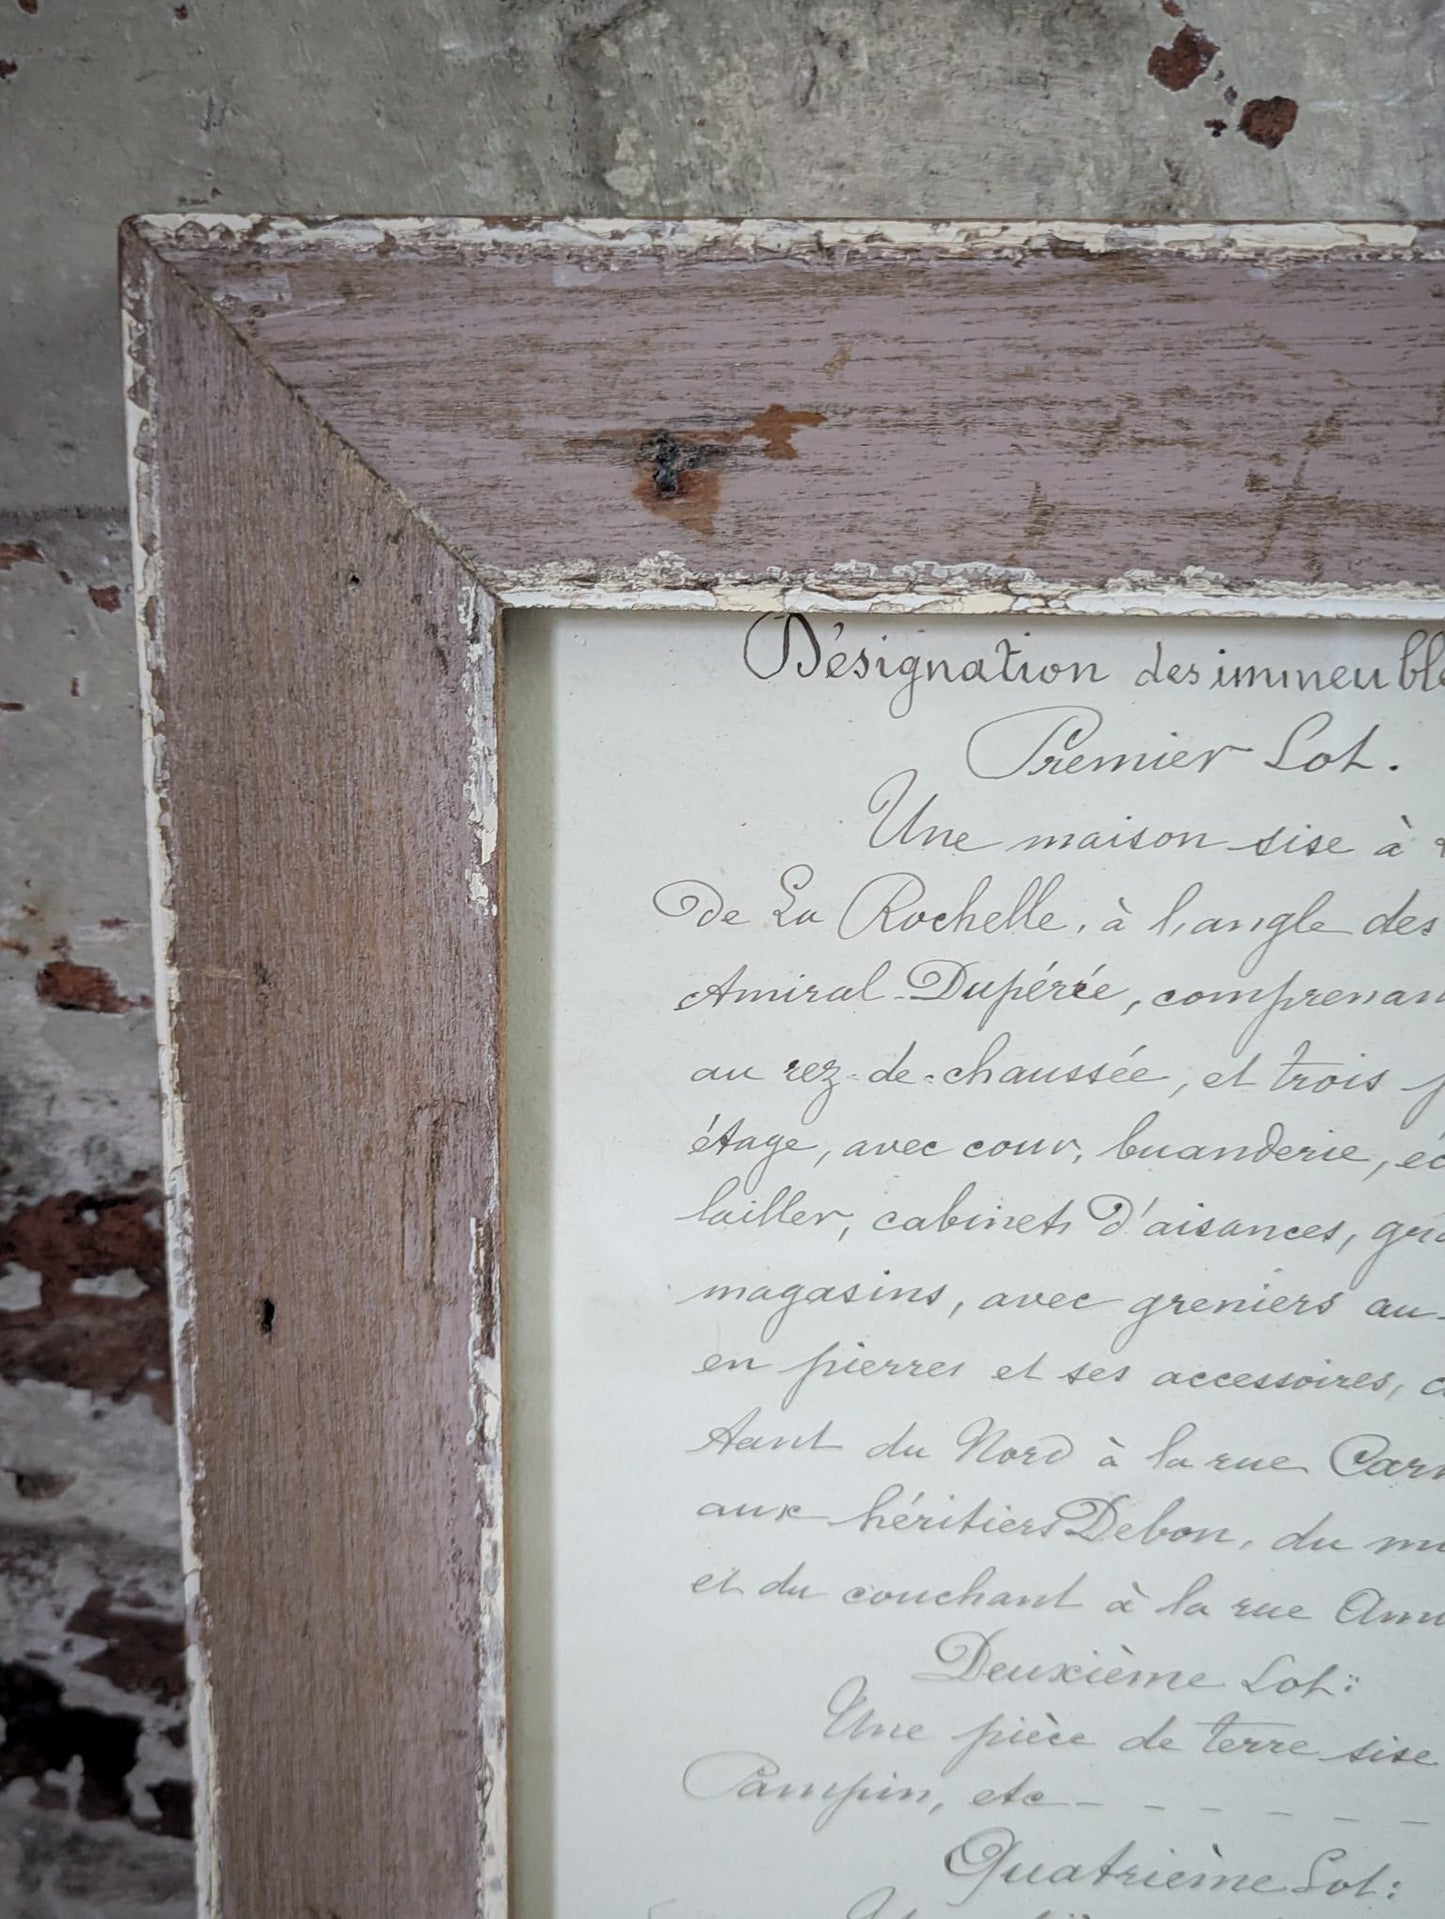 Désignation des immeuble
Premier Lot.
Une maison sise à
de La Rochelle, à l'angle des
Amiral-Dupérée, comprenan
au rez-de-chaussée, et trois
étage, avec cour, buanderie, éc
lailler, cabinets d'aisances, gra
magasins, avec greniers au-
en pierres et ses accessoires, c
tant du Nord à la rue Carn
aux héritiers Debon, du mi
et du couchant à la rue Ami
Deuxième Lot:
Une pièce de terre sise
Pampin, etc - - - - - -
Quatrième Lot: